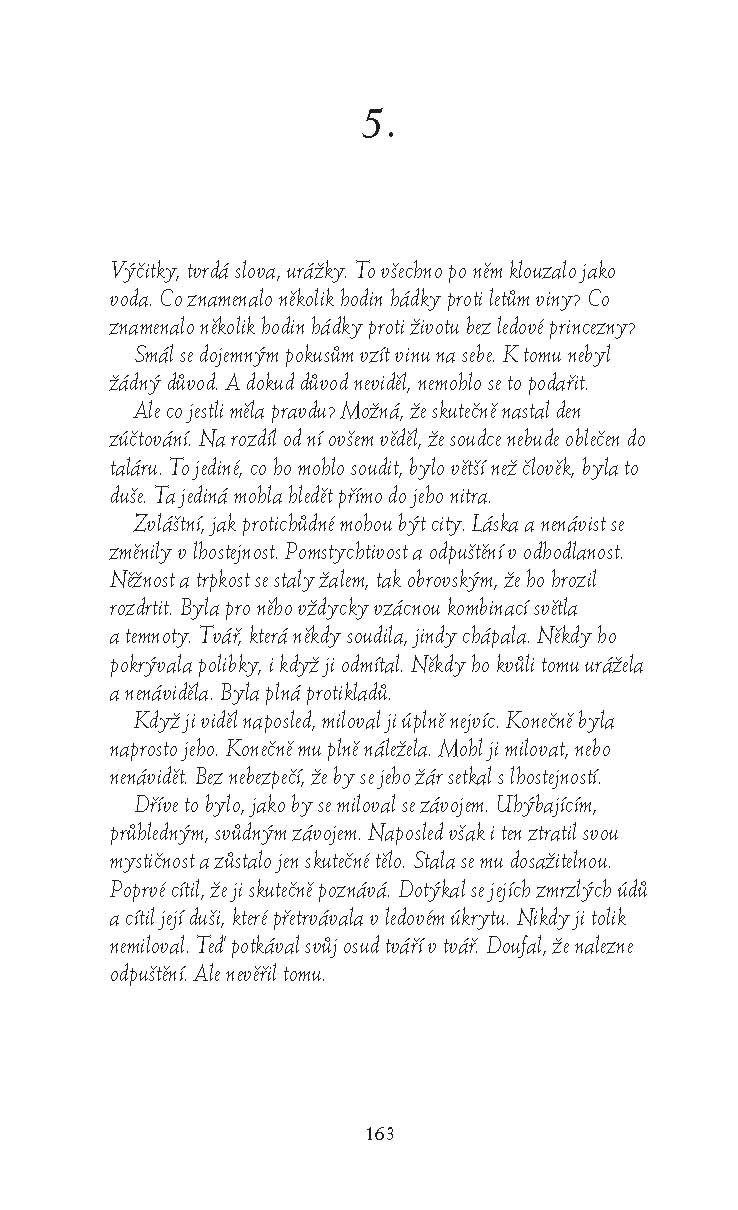 5.
Výčitky, tvrdá slova, urážky. To všechno po něm klouzalo jako
voda. Co znamenalo několik hodin hádky proti letům viny? Co
znamenalo několik hodin hádky proti životu bez ledové princezny?
Smál se dojemným pokusům vzít vinu na sebe. K tomu nebyl
žádný důvod. A dokud důvod neviděl, nemohlo se to podařit.
Ale co jestli měla pravdu? Možná, že skutečně nastal den
zúčtování. Na rozdíl od ní ovšem věděl, že soudce nebude oblečen do
taláru. To jediné, co ho mohlo soudit, bylo větší než člověk, byla to
duše. Ta jediná mohla hledět přímo do jeho nitra.
Zvláštní, jak protichůdné mohou být city. Láska a nenávist se
změnily v lhostejnost. Pomstychtivost a odpuštění v odhodlanost.
Něžnost a trpkost se staly žalem, tak obrovským, že ho hrozil
rozdrtit. Byla pro něho vždycky vzácnou kombinací světla
a temnoty. Tvář, která někdy soudila, jindy chápala. Někdy ho
pokrývala polibky, i když ji odmítal. Někdy ho kvůli tomu urážela
a nenáviděla. Byla plná protikladů.
Když ji viděl naposled, miloval ji úplně nejvíc. Konečně byla
naprosto jeho. Konečně mu plně náležela. Mohl ji milovat, nebo
nenávidět. Bez nebezpečí, že by se jeho žár setkal s lhostejností.
Dříve to bylo, jako by se miloval se závojem. Uhýbajícím,
průhledným, svůdným závojem. Naposled však i ten ztratil svou
mystičnost a zůstalo jen skutečné tělo. Stala se mu dosažitelnou.
Poprvé cítil, že ji skutečně poznává. Dotýkal se jejích zmrzlých údů
a cítil její duši, které přetrvávala v ledovém úkrytu. Nikdy ji tolik
nemiloval. Teď potkával svůj osud tváří v tvář. Doufal, že nalezne
odpuštění. Ale nevěřil tomu.
163